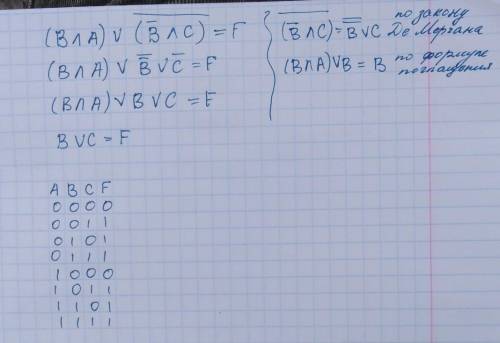 (B∧A) ∨ (B̅∧C)̅ = F
(B∧A) ∨ B̿ ∨ C̅ = F
(B∧A) ∨ B ∨ C = F
B∨C = F
(B̅∧C)̅ = B̿∨C по закону Де Моргана
(B∧A)∨B = B по формуле поглащения
A B C F
0 0 0 0
0 0 1 1
0 1 0 1
0 1 1 1
1 0 0 0
1 0 1 1
1 1 0 1
1 1 1 1